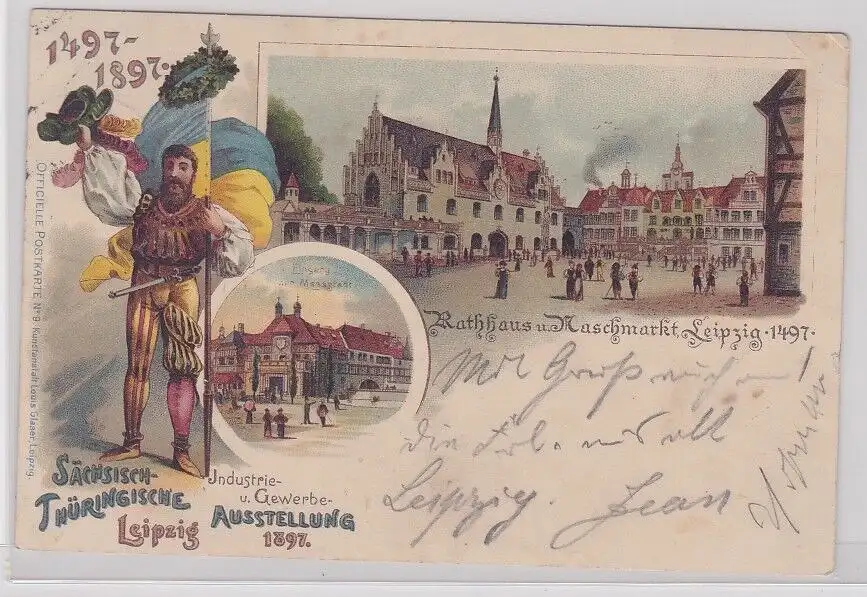 1497-
1897.
OFFICIELLE POSTKARTE No 9 Kunstanstalt Louis Glaser, Leipzig.
Eingang
Rathhaus u. Naschmarkt, Leipzig · 1497 ·
SÄCHSISCH-
THÜRINGISCHE
Leipzig
Industrie-
u. Gewerbe-
AUSSTELLUNG
1897.
Mit Gruß
die
Leipzig. Jean